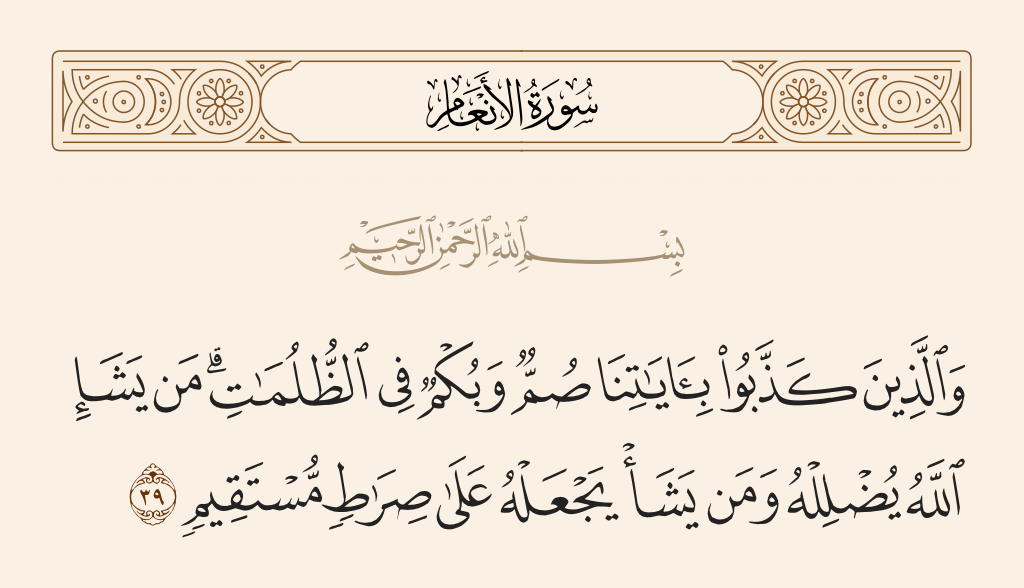 سُورَةُ الأَنْعَامِ
بِسْمِ ٱللَّهِ ٱلرَّحْمَٰنِ ٱلرَّحِيمِ
وَٱلَّذِينَ كَذَّبُوا۟ بِـَٔايَـٰتِنَا صُمٌّ وَبُكْمٌ فِى ٱلظُّلُمَـٰتِ ۗ مَن يَشَإِ
ٱللَّهُ يُضْلِلْهُ وَمَن يَشَأْ يَجْعَلْهُ عَلَىٰ صِرَٰطٍ مُّسْتَقِيمٍ ٣٩